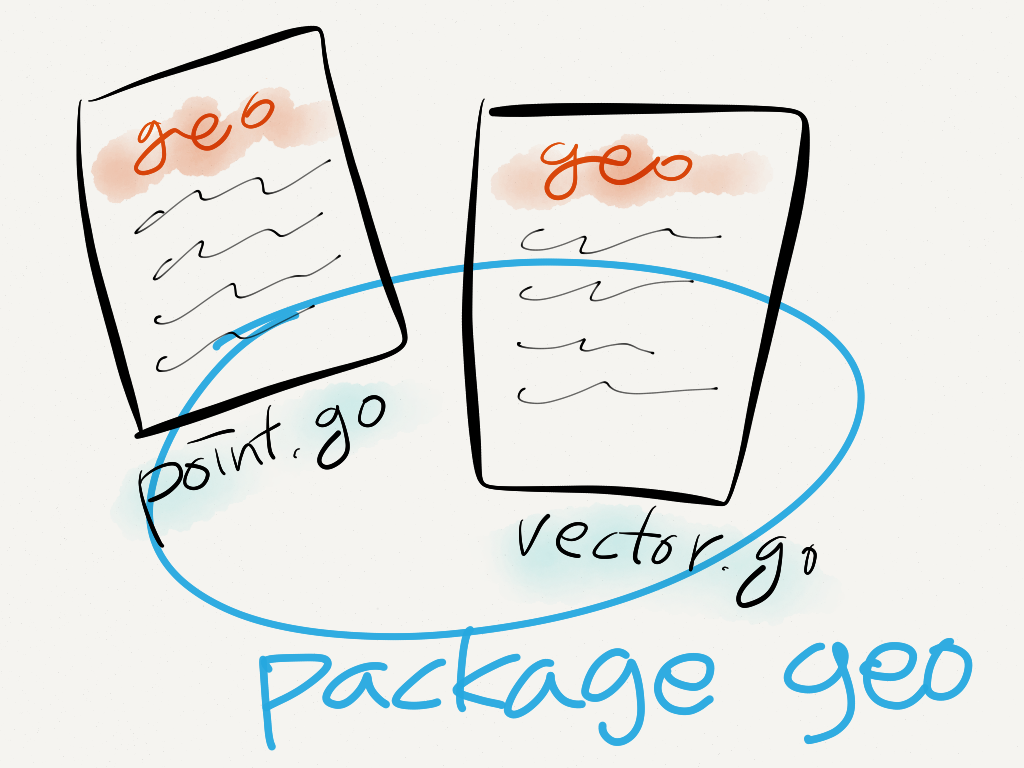 geo
geo
point.go
vector.go
package geo